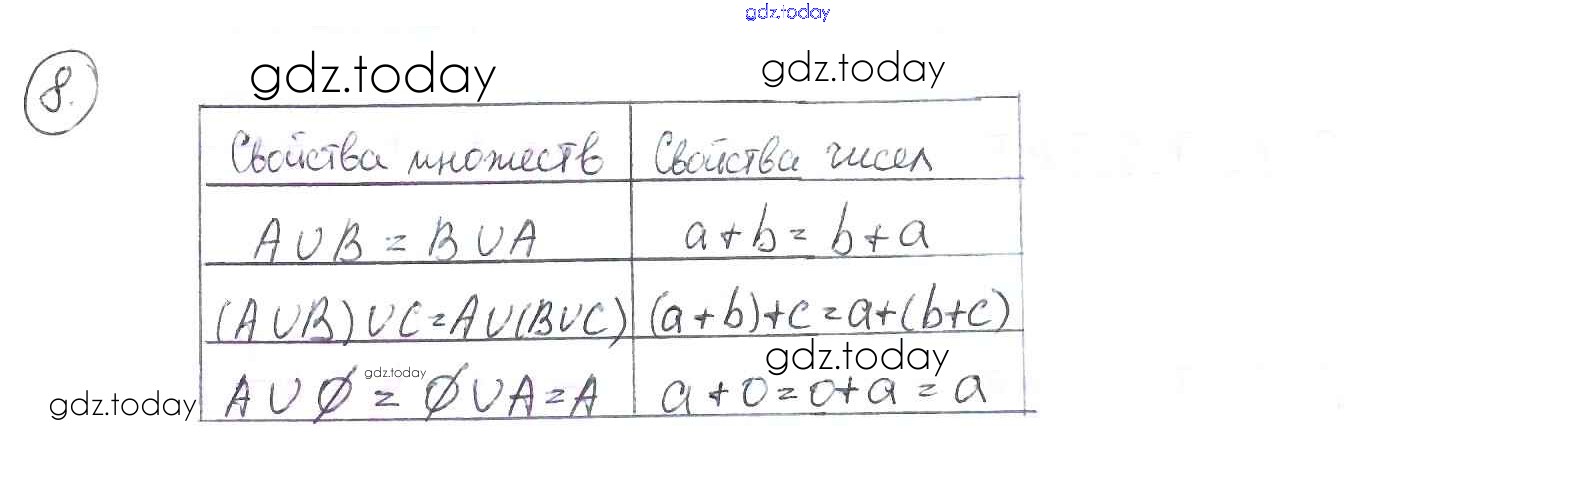 gdz.today
gdz.today gdz.today
8.
Свойства множеств Свойства чисел
A∪B = B∪A a+b = b+a
(A∪B)∪C=A∪(B∪C) (a+b)+c=a+(b+c)
gdz.today
gdz.today
A∪∅ = ∅∪A=A a+0=0+a=a
gdz.today